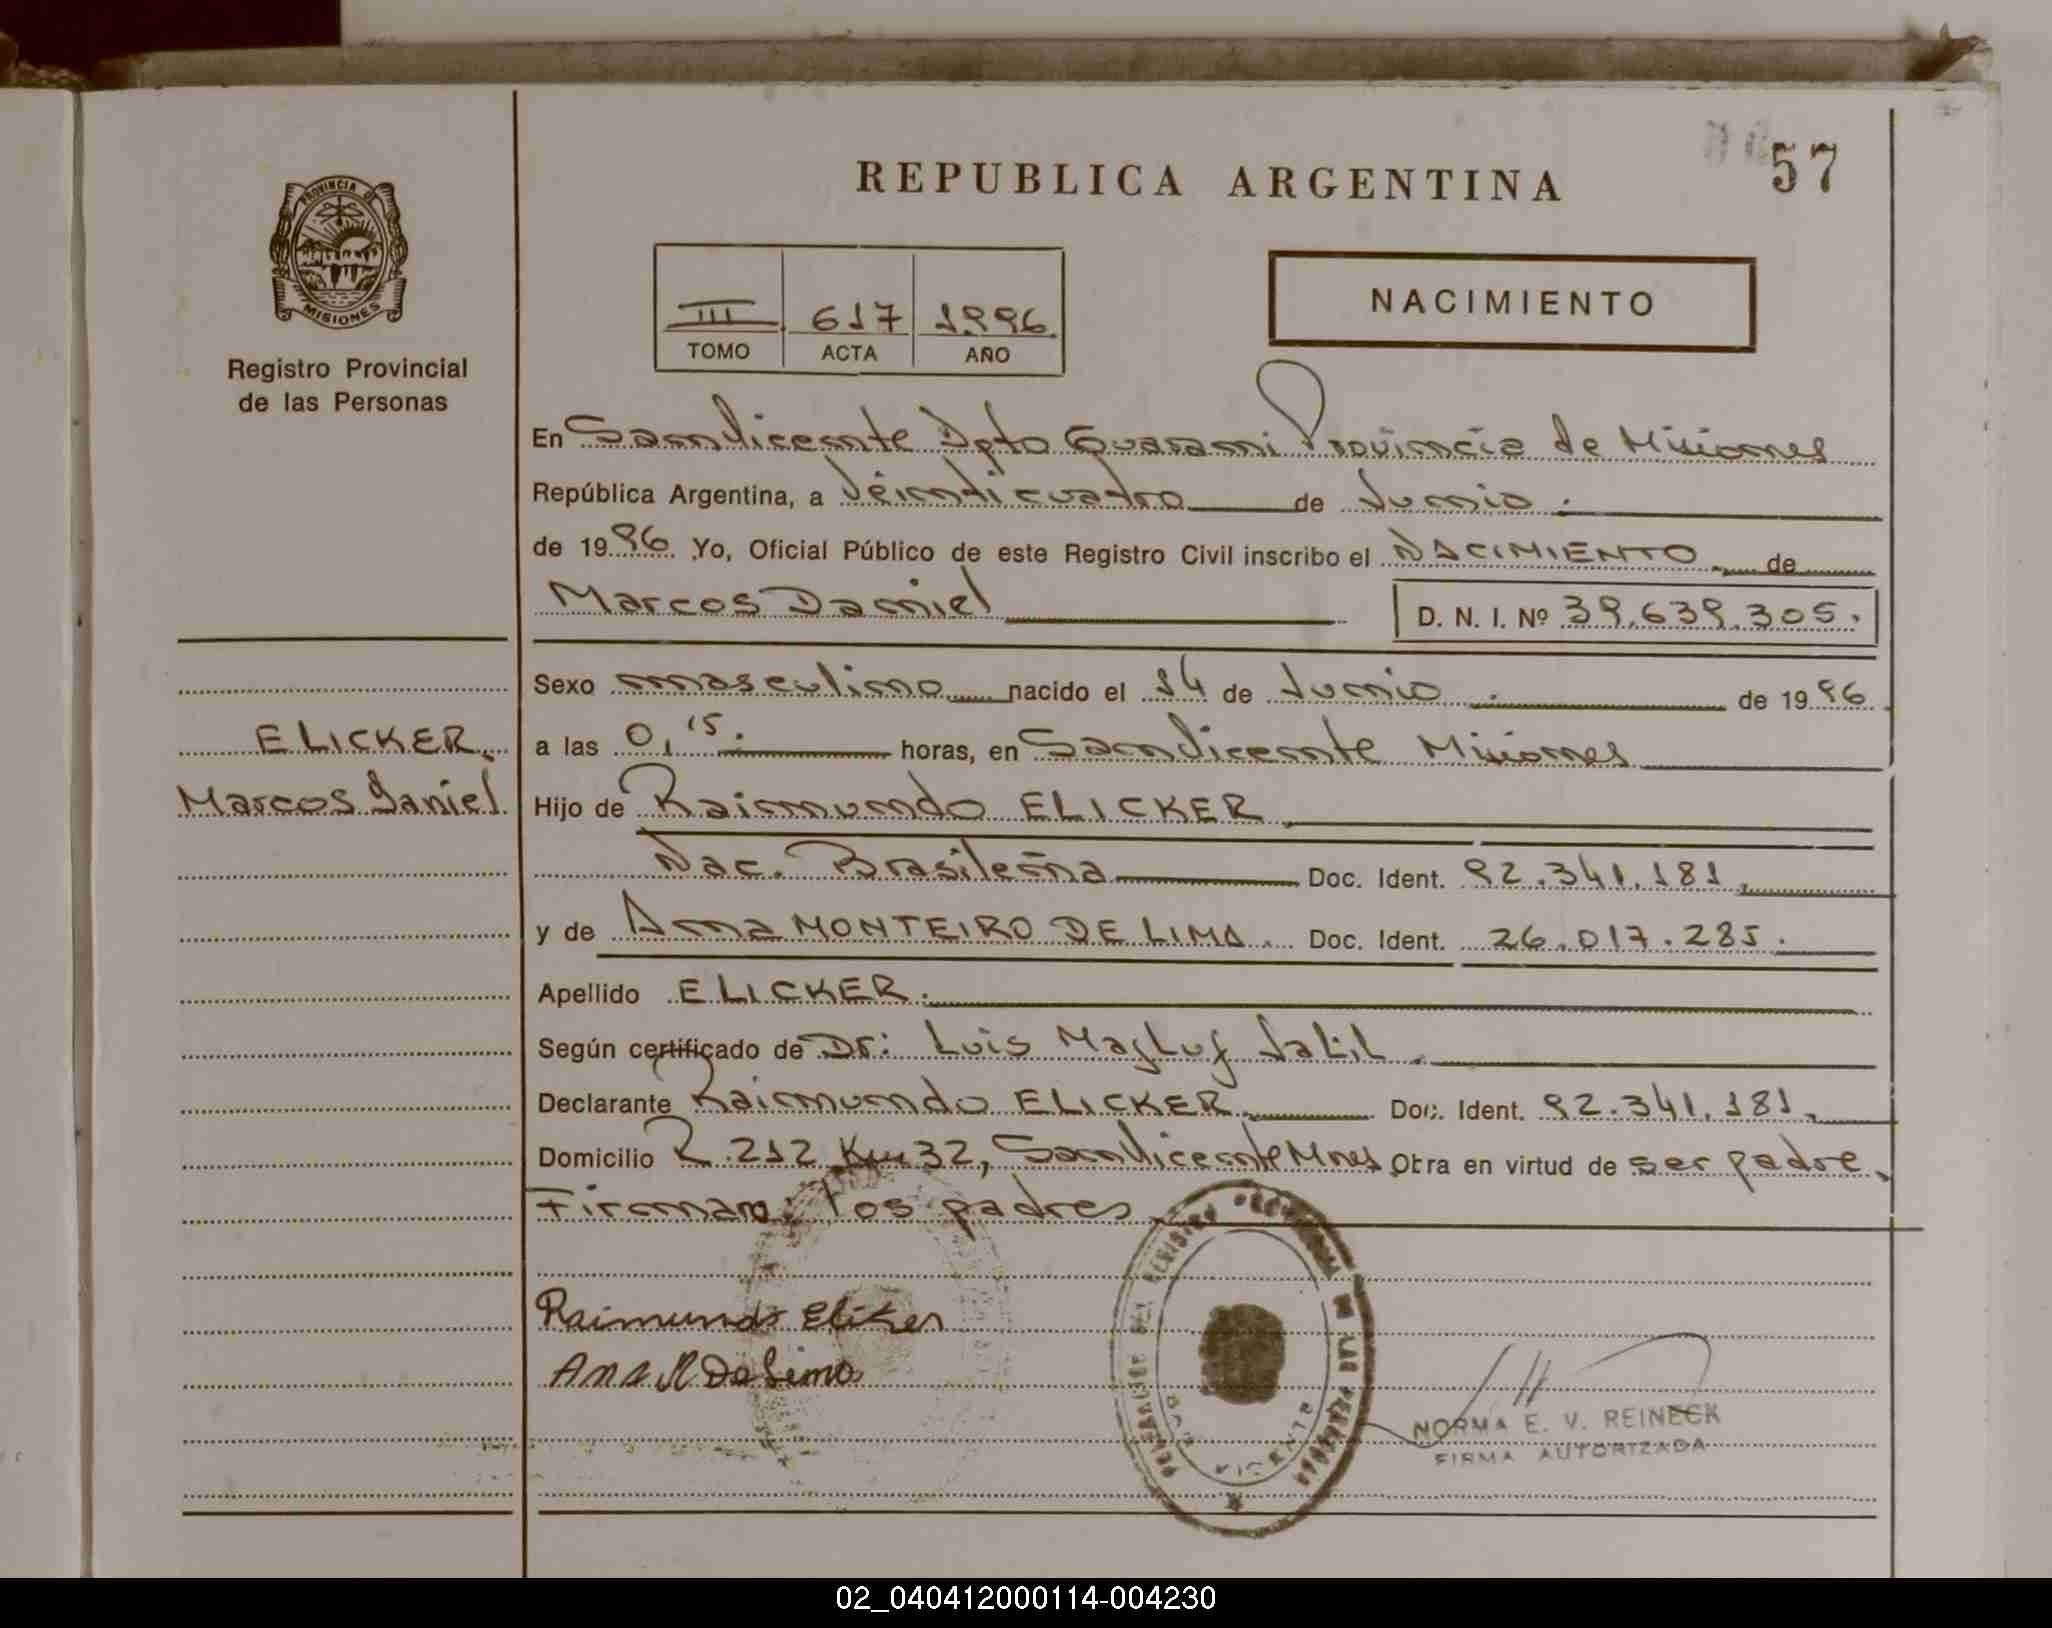 REPUBLICA ARGENTINA
57
PROVINCIA D
MISIONES
Registro Provincial
de las Personas
III 617 1996
TOMO ACTA AÑO
NACIMIENTO
En San Vicente Dpto Guarani Provincia de Misiones
República Argentina, a Veinticuatro de Junio.
de 1996. Yo, Oficial Público de este Registro Civil inscribo el NACIMIENTO de
Marcos Daniel
D. N. I. Nº 39.639.305.
Sexo masculino nacido el 14 de Junio. de 1996.
ELICKER,
a las 0,15. horas, en San Vicente Misiones
Marcos Daniel.
Hijo de Raimundo ELICKER
Nac. Brasileña Doc. Ident. 92.341.181.
y de Anna MONTEIRO DE LIMA. Doc. Ident. 26.017.285.
Apellido ELICKER.
Según certificado de Dr: Luis Majluf Jalil.
Declarante Raimundo ELICKER. Doc. Ident. 92.341.181.
Domicilio R. 212 Km 32, San Vicente Mnes Obra en virtud de ser padre.
Firman: los padres.
Raimundo Elicker
Ana M De Lima
NORMA E. V. REINECK
FIRMA AUTORIZADA
02_040412000114-004230